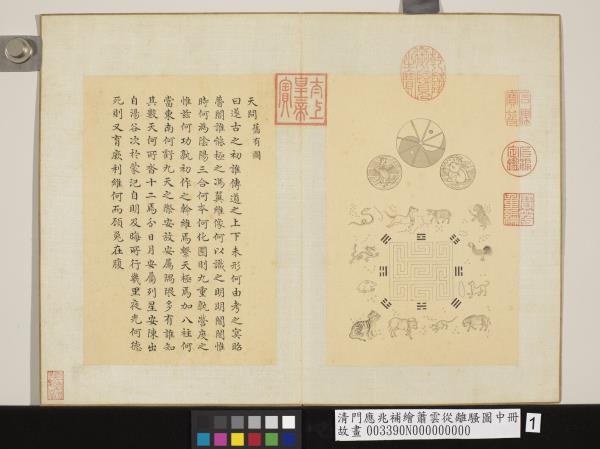 天問 舊有圖
曰遂古之初誰傳道之上下未形何由考之冥昭
瞢闇誰能極之馮翼維像何以識之明明闇闇惟
時何為陰陽三合何本何化圜則九重孰營度之
惟茲何功孰初作之斡維焉繫天極焉加八柱何
當東南何虧九天之際安放安屬隅隈多有誰知
其數天何所沓十二焉分日月安屬列星安陳出
自湯谷次於蒙汜自明及晦所行幾里夜光何德
死則又育厥利維何而顧菟在腹
太上皇帝之寶
乾隆御覽之寶
石渠寶笈
石渠定鑑
寶笈重編
清門應兆補繪蕭雲從離騷圖中冊
故畫 003390N000000000
1